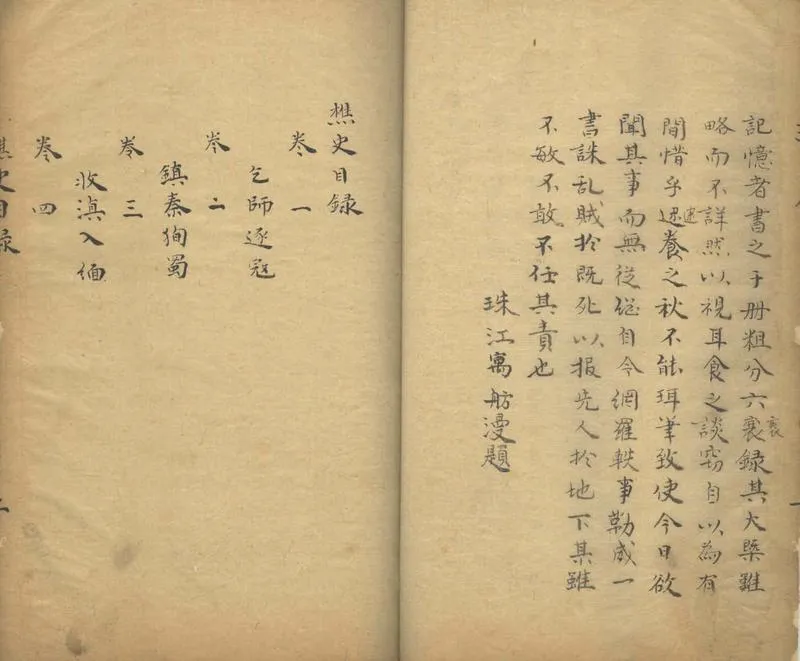 記憶者書之于册粗分六裒録其大槩雖
略而不詳然以視耳食之談窃自以為有
間惜乎逮養之秋不能珥筆致使今日欲
聞其事而無從總自今網羅軼事勒成一
書誅乱賊扵既死以报先人扵地下某雖
不敏不敢不任其責也
珠江寓舫漫題
樵史目録
卷一
乞師逐寇
卷二
鎮秦狥蜀
卷三
收滇入緬
卷四
樵史目録